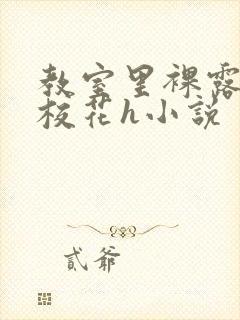 教室里裸露
校花h小説
貳爺